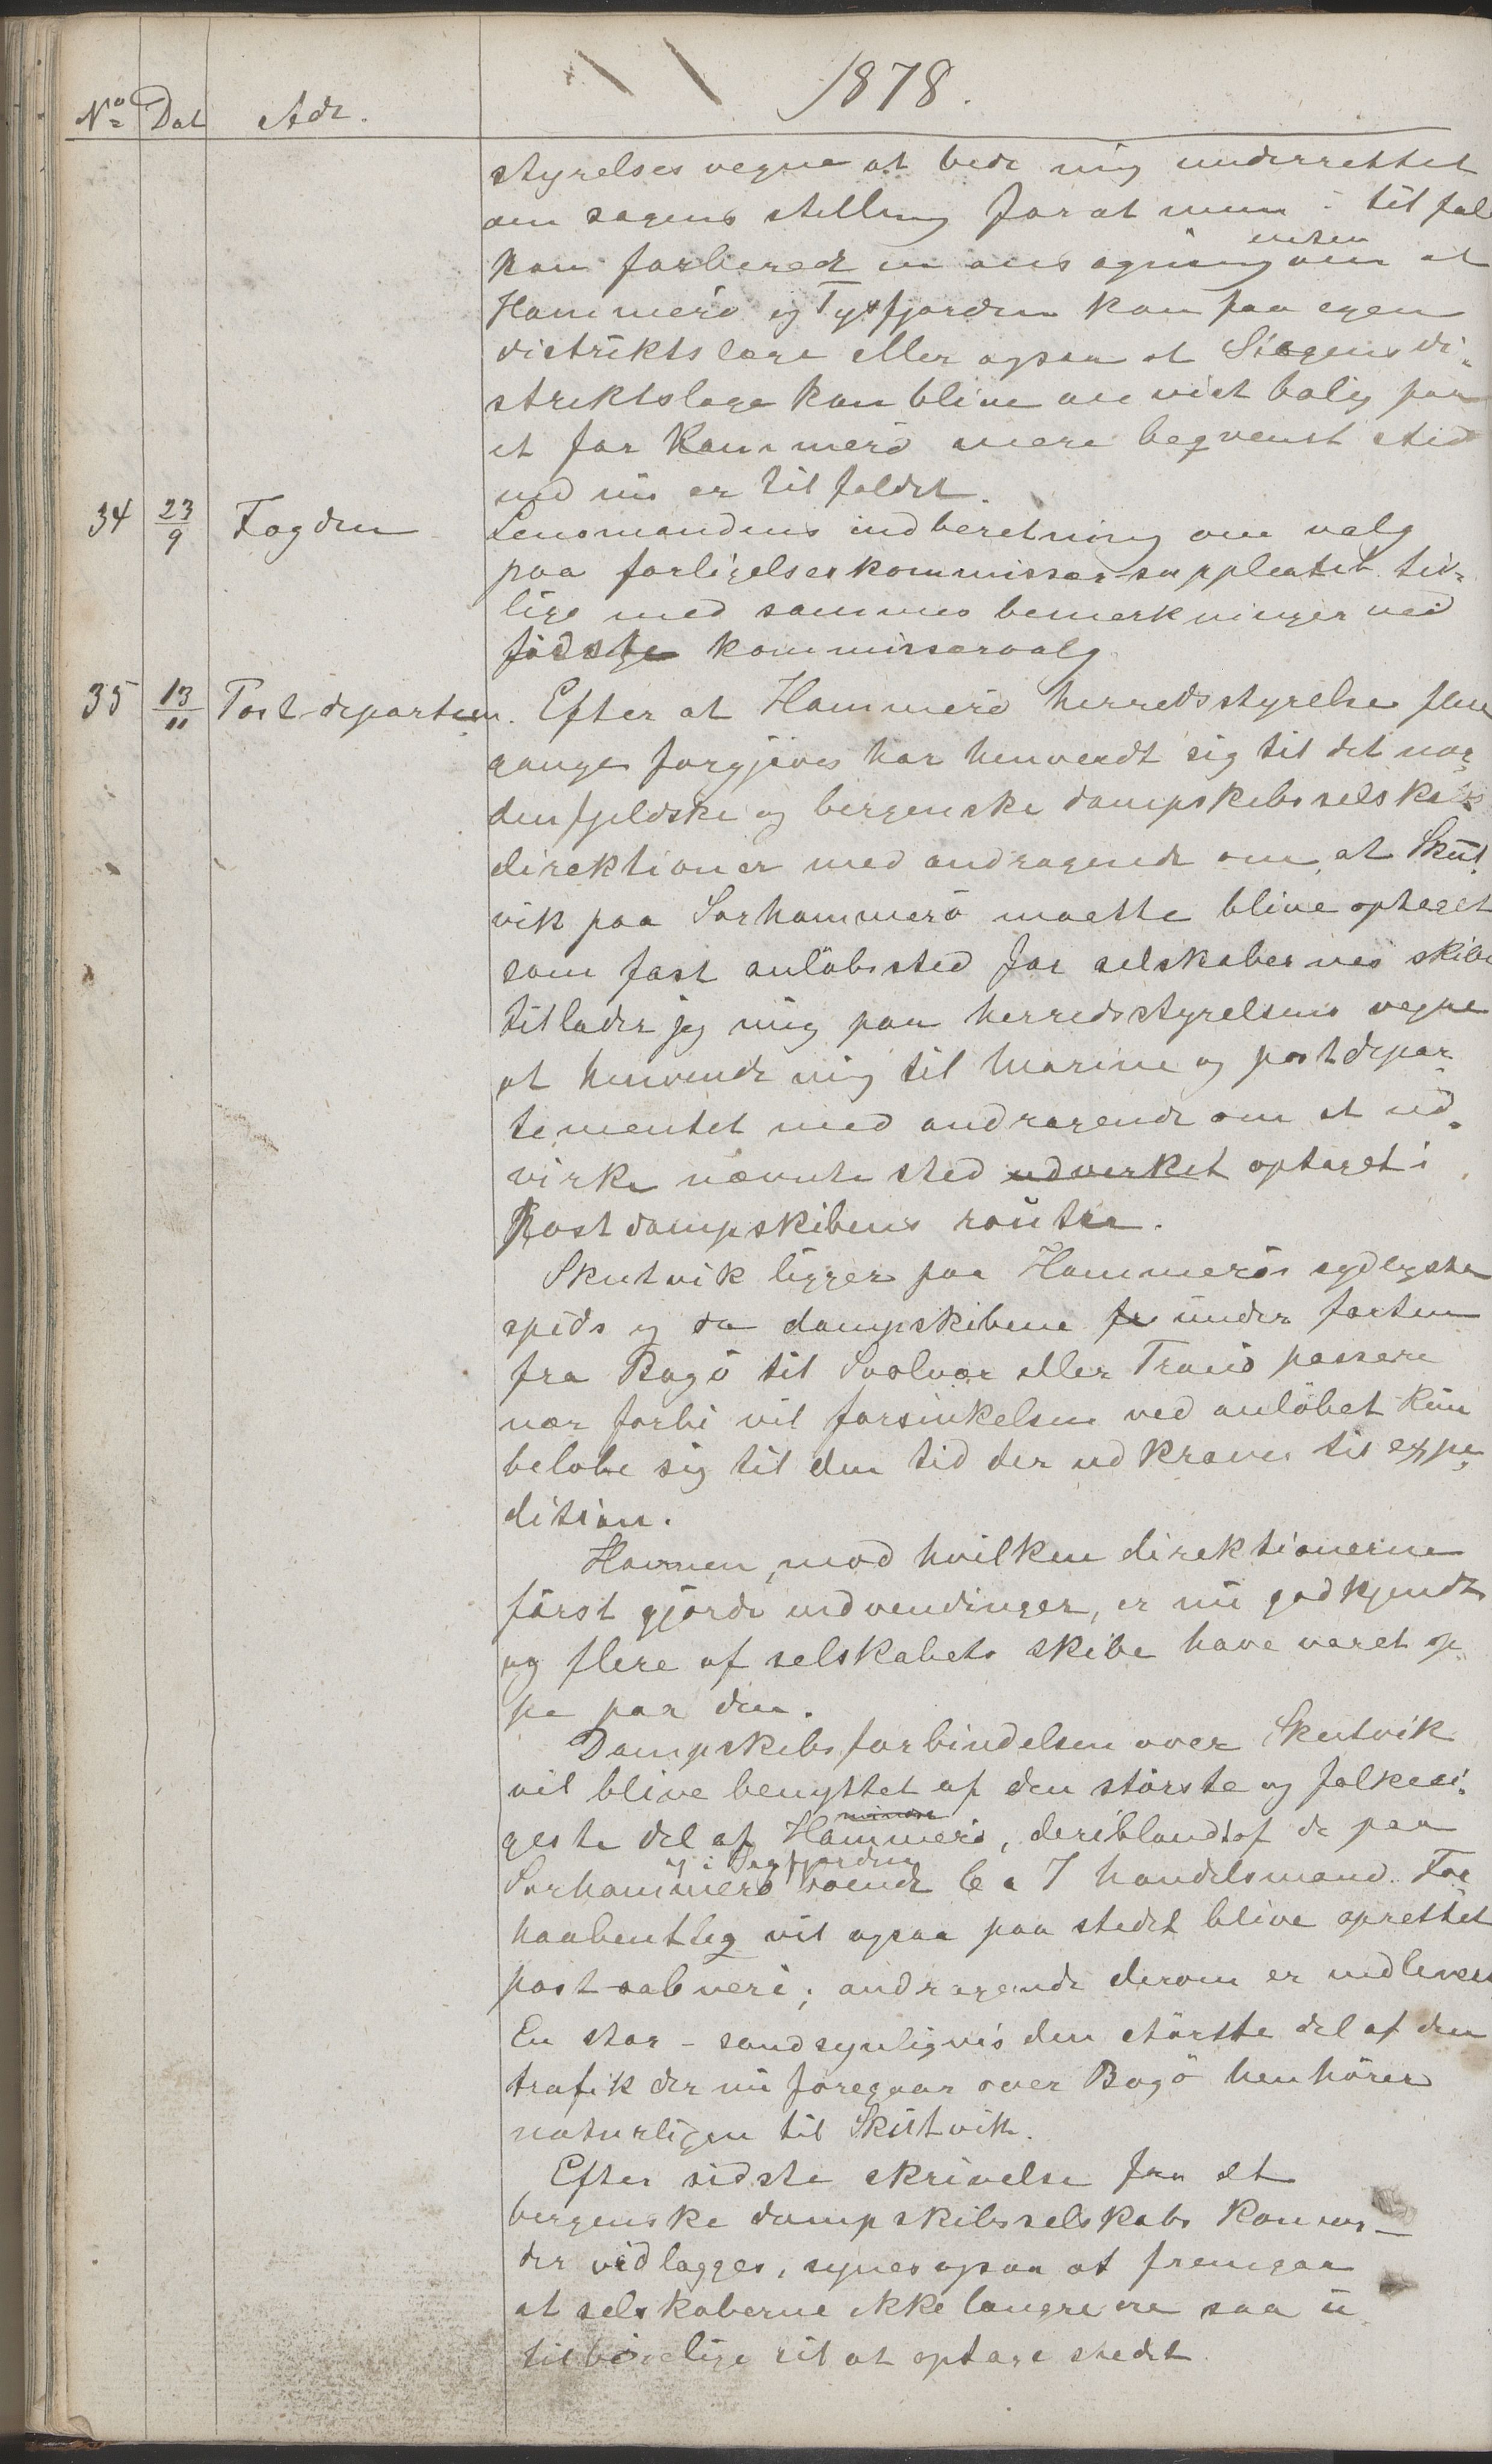 1878.
No Dat Adr.
styrelses vegne at bede mig underrettet
om sagens stilling for at man i tilfæl
kan forberede en ansøgning enten om at
Hammerö og Tysfjorden kan faa egen
distriktslæge eller ogsaa at Steigens di-
striktslæge kan blive anvist bolig paa
et for Hammerö mere beqvemt sted
end nu er tilfældet.
34 23/9 Fogden Lensmandens indberetning om valg
paa forligelseskommissær-suppleanter tid-
lige med sammes bemerkninger ved
sidste kommissærvalg
35 13/11 Postdepartem. Efter at Hammerö herredsstyrelse flere
gange forgjæves har henvendt sig til det nor-
denfjeldske og bergenske dampskibsselskabs
direktioner med andragende om, at Skut-
vik paa Sørhammerö maatte blive optaget
som fast anløbssted for selskabernes skibe
tillader jeg mig paa herredsstyrelsens vegne
at henvende mig til marine og postdepar-
tementet med andragende om at ud-
virke nævnte sted udverket optaget i
Postdampskibens route.
Skutvik ligger paa Hammerös sydligste
spids og da dampskibene fr under farten
fra Bogö til Svolvær eller Tranö passere
nær forbi vil forsinkelsen ved anløbet kun
beløbe sig til den tid der udkræves til expe-
dition.
Havnen, mod hvilken direktionerne
først gjorde indvendinger, er nu godkjendt
og flere af selskabets skibe have været op-
pe paa den.
Dampskibsforbindelsen over Skutvik
vil blive benyttet af den største og folkeri-
geste del af Hammerö, deriblandt af de paa
Sørhammerö og i Sagfjorden boende 6 a 7 handelsmænd. For
haabentlig vil ogsaa paa stedet blive oprettet
postaabneri; andragende derom er indleveret
En stor - sandsynligvis den største del af den
trafik der nu foregaar over Bogö henhører
naturligen til Skutvik.
Efter sidste skrivelse fra det
bergenske dampskibsselskabs
der vedlægges, synes ogsaa at fremgaa
at selskaberne ikke længre ere saa u
tilbøielige til at optage stedet.